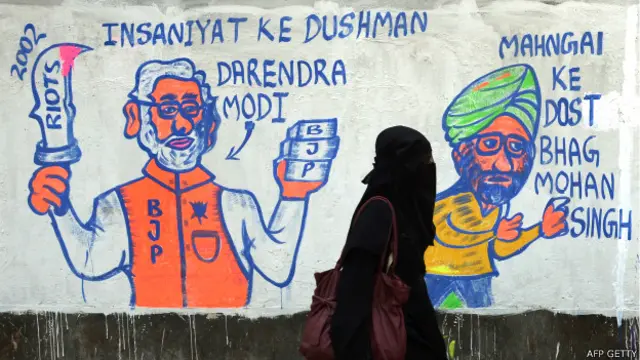 INSANIYAT KE DUSHMAN
2002
RIOTS
DARENDRA
MODI
B
J
P
BJP
MAHNGAI
KE
DOST
BHAG
MOHAN
SINGH
AFP GETTY